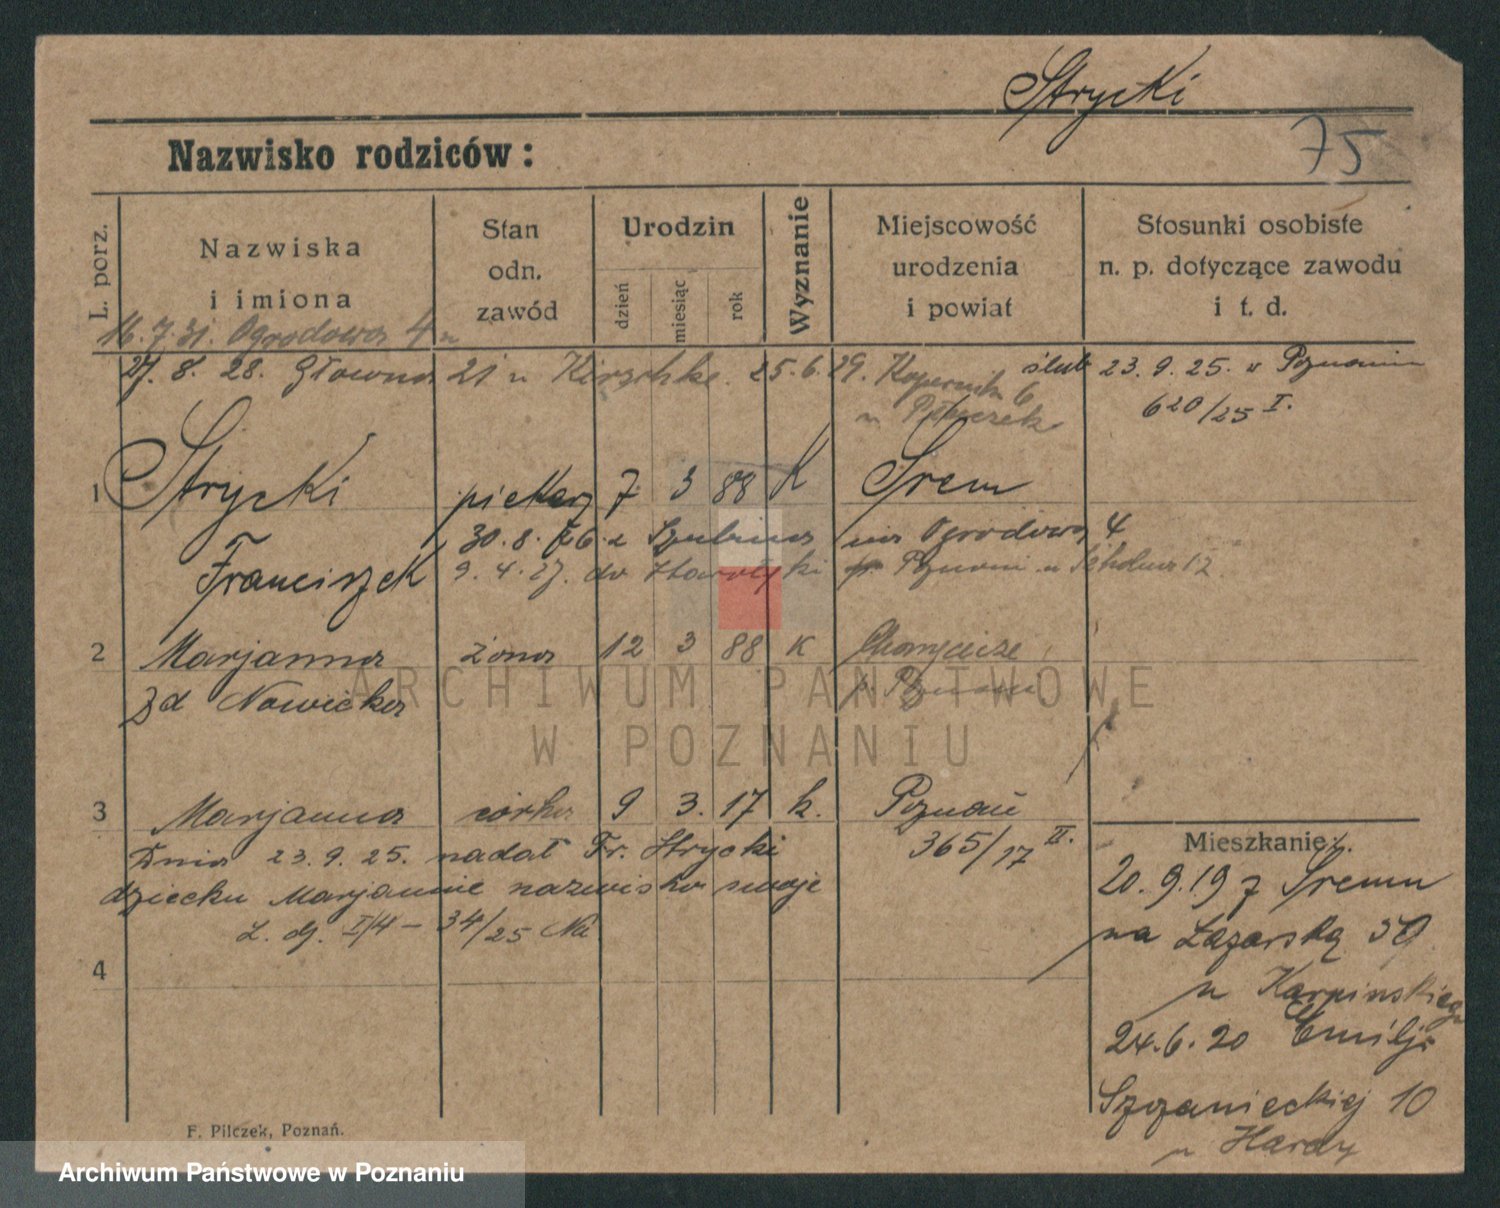 Strycki
75
Nazwisko rodziców:
L. porz.
Nazwiska
i imiona
Stan
odn.
zawód
Urodzin
dzień
miesiąc
rok
Wyznanie
Miejscowość
urodzenia
i powiat
Stosunki osobiste
n. p. dotyczące zawodu
i t. d.
16.7.31. Ogrodowa 4
27.8.28. Główna 21 u Kirschke. 25.6.29. Kopernika 6
ślub 23.9.25. w Poznaniu
620/25 I.
1 Strycki piekarz 7 3 88 K Srem
Franciszek
30.8.26 z Szubina na Ogrodową 4
9.4.27. do
2 Marjanna żona 12 3 88 K
zd Nowicka p. Poznań
3 Marjanna córka 9 3. 17 k. Poznań
365/17 II.
Dnia 23.9.25. nadał Fr. Strycki
dziecku Marjannie nazwisko swoje
L. dj. I/4 - 34/25 Na
4
Mieszkanie:
20.9.19 z Sremu
na Łazarską 39
u Karpińskiego
24.6.20 Emilji
Szczanieckiej 10
u Hardy
F. Pilczek, Poznań.
ARCHIWUM PAŃSTWOWE
W POZNANIU
Archiwum Państwowe w Poznaniu